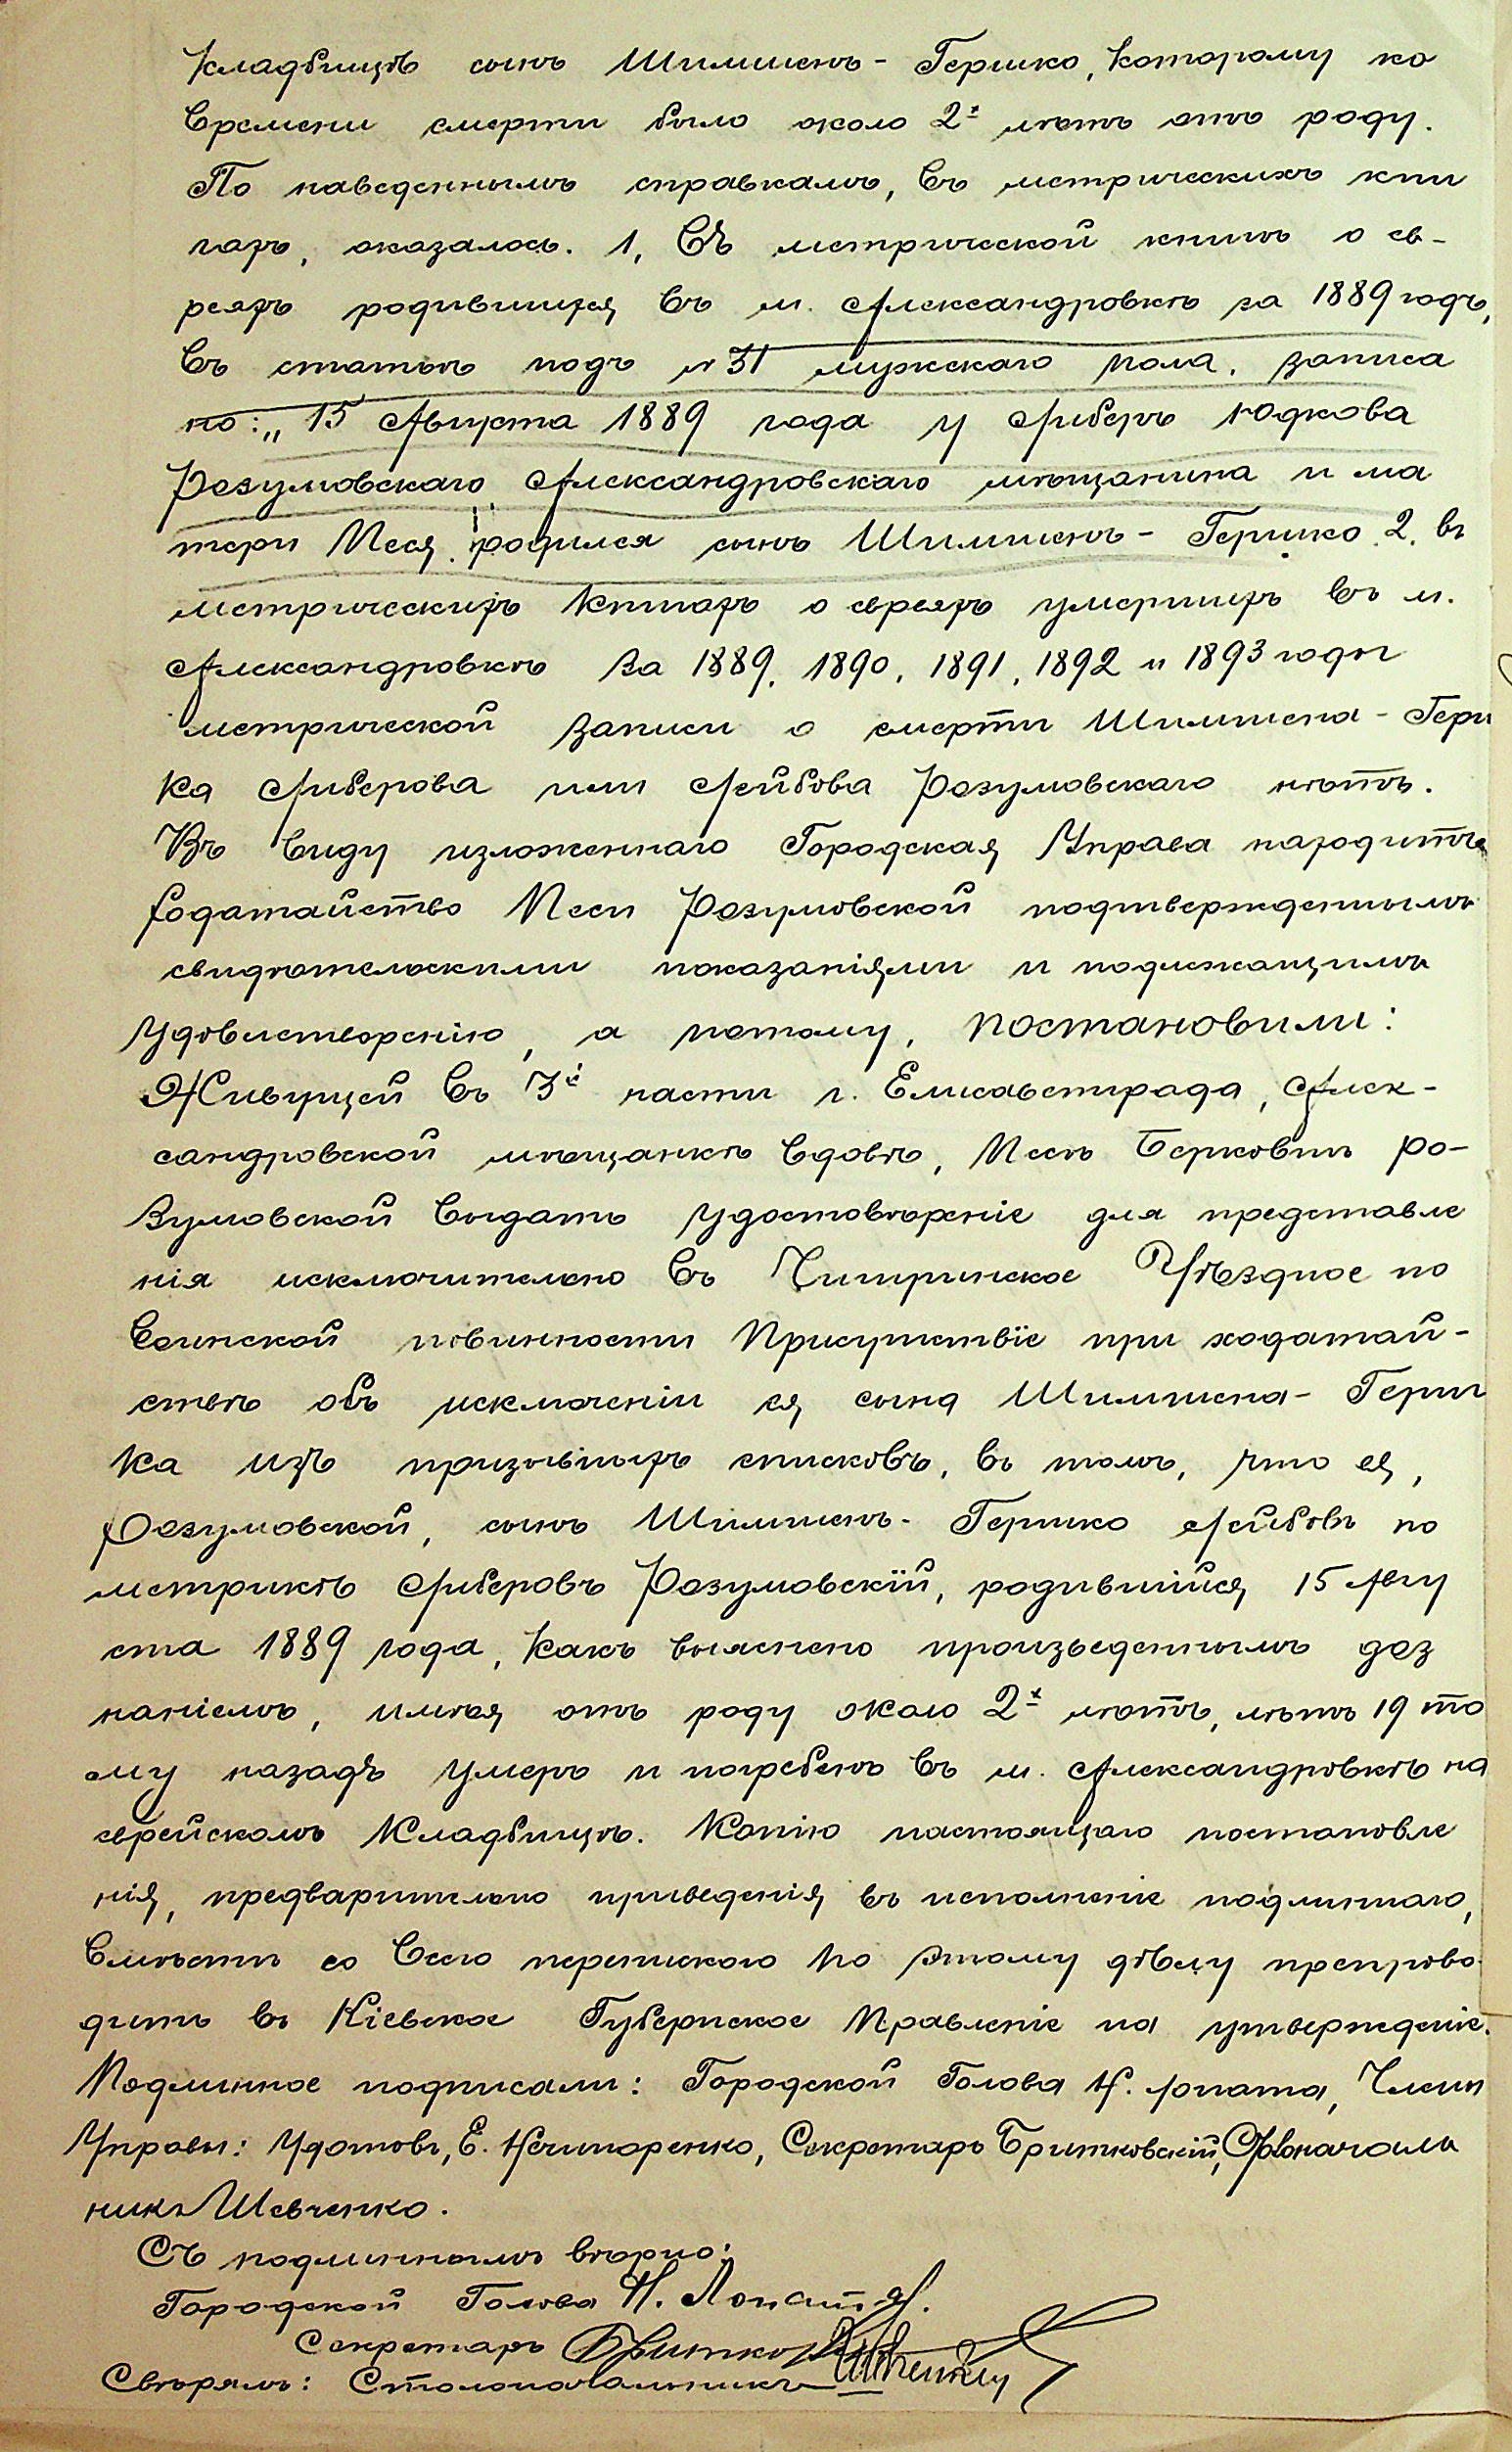 кладбищѣ сынъ Шимшенъ-Гершко, которому ко
времени смерти было около 2х лѣтъ отъ роду.
По наведеннымъ справкамъ, въ метрическихъ кни
гахъ, оказалось. 1, Въ метрической книгѣ о ев-
реяхъ родившихся въ м. Александровкѣ за 1889 годъ,
въ статьѣ подъ № 31 мужскаго пола, записа
но: „15 Августа 1889 года у Либеръ Юдкова
Розумовскаго Александровскаго мѣщанина и ма
тери Меся родился сынъ Шимшенъ-Гершко 2, въ
метрическихъ книгахъ о евреяхъ умершихъ въ м.
Александровкѣ за 1889, 1890, 1891, 1892 и 1893 годы
метрической записи о смерти Шимшена-Герш
ка Либерова или Лейбова Розумовскаго нѣтъ.
Въ виду изложеннаго Городская Управа находитъ
ходатайство Меси Розумовской подтвержденнымъ
свидѣтельскими показаніями и подлежащимъ
удовлетворенію, а потому, постановили:
Живущей въ 3й части г. Елисаветграда, Алек-
сандровской мѣщанкѣ вдовѣ, Месѣ Берковнѣ Ро-
зумовской выдать удостовѣреніе для представле
нія исключительно въ Чигиринское Уѣздное по
воинской повинности Присутствіе при ходатай-
ствѣ объ исключеніи ея сына Шимшена-Герш
ка изъ призывныхъ списковъ, въ томъ, что ея,
Розумовской, сынъ Шимшенъ-Гершко Лейбовъ по
метрикѣ Либеровъ Розумовскій, родившійся 15 Авгу
ста 1889 года, какъ выяснено произведеннымъ доз
наніемъ, имѣя отъ роду около 2х лѣтъ, лѣтъ 19 то
му назадъ умеръ и погребенъ въ м. Александровкѣ на
еврейскомъ кладбищѣ. Копію настоящаго постановле
нія, предварительно приведенія въ исполненіе подлиннаго,
вмѣстѣ со всею перепискою по этому дѣлу препрово
дить въ Кіевское Губернское Правленіе на утвержденіе.
Подлинное подписали: Городской Голова Н. Лопата, Члены
Управы: Удотовъ, Е. Нечипоренко, Секретарь Бритковскій, Столоначаль
никъ Шевченко.
Съ подлиннымъ вѣрно:
Городской Голова Н. Лопата.
Секретарь Бритковскій
Свѣрялъ: Столоначальникъ Шевченко